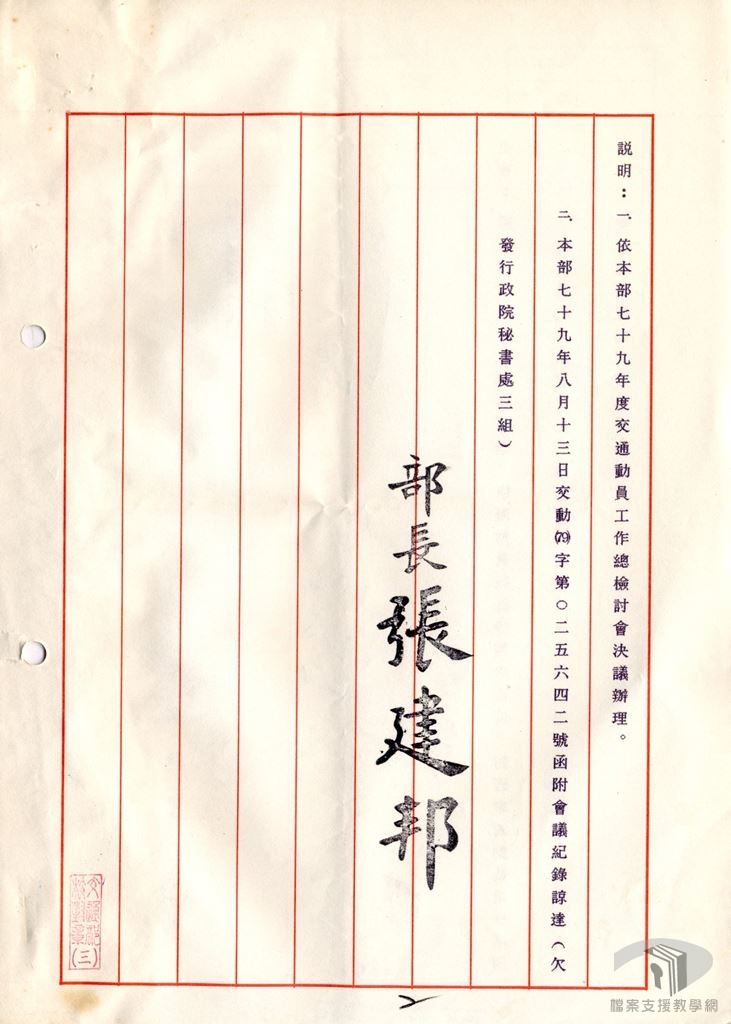 説明：一、依本部七十九年度交通動員工作總檢討會決議辦理。
二、本部七十九年八月十三日交動(79)字第○二五六四二號函附會議紀錄諒達（欠
發行政院秘書處三組）
部長張建邦
交通部
校對章
(三)
2
檔案支援教學網